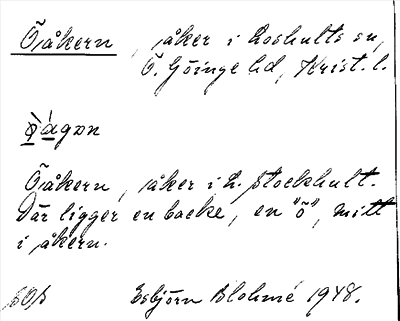 Öåkern, åker i Loshults sn,
Ö. Göinge hd, Krist. l.
ø̀ ágɒn
Öåkern, åker i L. Stockhult.
Där ligger en backe, en "ö", mitt
i åkern.
Esbjörn Blohmé 1948.